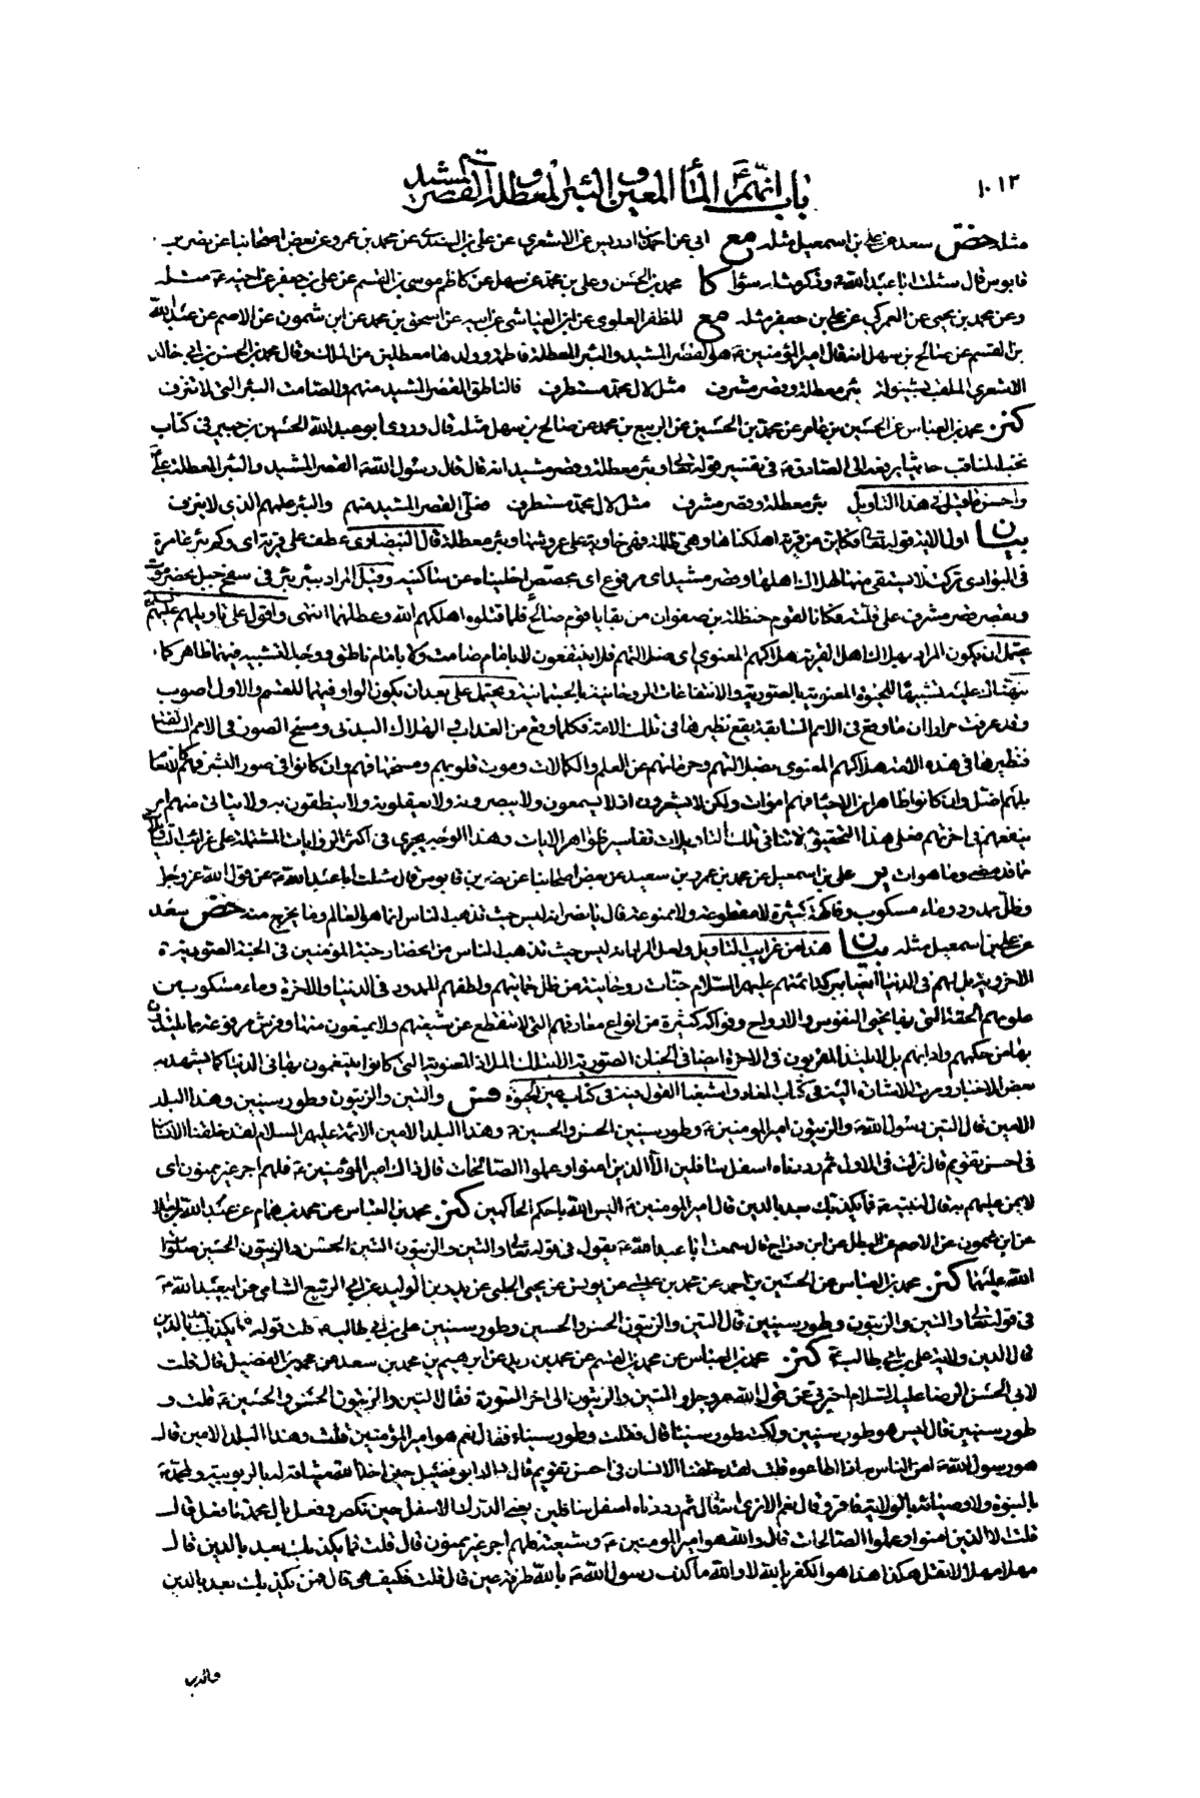 ١٠١٣
باب انهم ع الماء المعين و البئر المعطلة و القصر المشيد
مثله خص سعد عن علي بن اسمعيل مثله مع ابي عن احمد بن ادريس عن الاشعري عن علي بن السندي عن محمد بن عمرو عن بعض اصحابنا عن نصر بن
قابوس قال سئلت ابا عبد الله ع وذكر مثله سؤا كا محمد بن الحسن وعلي بن محمد عن سهل عن موسى بن القسم عن علي بن جعفر عن اخيه ع مثله
وعن محمد بن يحيى عن العمركي عن علي بن جعفر مثله مع المظفر العلوي عن ابن العياشي عن ابيه عن اسحق بن محمد عن ابن شمون عن الاصم عن عبد الله
بن القسم عن صالح بن سهل انه قال امير المؤمنين ع هو القصر المشيد والبئر المعطلة فاطمة وولدها معطلين من الملك وقال محمد بن الحسن بن ابي خالد
الاشعري الملقب بشنبولة بئر معطلة وقصر مشرف مثل لال محمد مستطرف فالناطق القصر المشيد منهم والصامت البئر التي لا تنزف
كنز محمد بن العباس عن الحسين بن عامر عن محمد بن الحسين عن الربيع بن محمد عن صالح بن سهل مثله قال وروى ابو عبد الله الحسين بن جبير في كتاب
نخب المناقب حديثا يرفعه الى الصادق ع في تفسير قوله تعالى وبئر معطلة وقصر مشيد انه قال قال رسول الله ص القصر المشيد والبئر المعطلة علي ع
واحسن ما قيل في هذا التاويل بئر معطلة وقصر مشرف مثل لال محمد مستطرف فعلى القصر المشيد منهم والبئر علمهم الذي لا ينزف
بيان اول الاية قوله تعالى فكاين من قرية اهلكناها وهي ظالمة فهي خاوية على عروشها وبئر معطلة قال البيضاوي عطف على قرية اي وكم بئر عامرة
في البوادي تركت لا يستقى منها لهلاك اهلها وقصر مشيد اي مرفوع اي مجصص اخليناه عن ساكنيه وقيل المراد ببئر بئر في سفح جبل بحضرموت
وبقصر قصر مشرف على قلته فكانا لقوم حنظلة بن صفوان من بقايا قوم صالح فلما قتلوه اهلكهم الله وعطلهما انتهى واقول على تاويلهم عليهم السلام
يحتمل ان يكون المراد بهلاك اهل القرية هلاكهم المعنوي اي ضلالتهم فلا ينتفعون لا بامام صامت ولا بامام ناطق ووجه التشبيه فيهما ظاهر كما
نبهناك عليه تشبيها للحيوة المعنوية بالصورية والانتفاعات الروحانية بالجسمانية ويحتمل على بعد ان يكون الواو فيهما للقسم والاول اصوب
وقد عرفت مرارا ان ما وقع في الامم السابقة يقع نظيرها في تلك الامة فكلما وقع من العذاب والهلاك البدني ومسخ الصور في الامم السالفة
فنظيرها في هذه الامة هلاكهم المعنوي بضلالتهم وحرمانهم عن العلم والكمالات وموت قلوبهم ومسخها فهم وان كانوا في صور البشر فهم كالانعام
بل هم اضل وان كانوا ظاهرا من الاحياء فهم اموات ولكن لا يشعرون اذ لا يسمعون ولا يبصرون ولا يعقلون ولا ينطقون به ولا يتاتى منهم امر
ينفعهم في اخرتهم فعلى هذا التحقيق لا تنافي تلك التاويلات تفاسير ظواهر الايات وهذا الوجه يجري في اكثر الروايات المشتملة على غرائب التاويلات
مما قد مضى وما هو ات ير علي بن اسمعيل عن محمد بن عمرو بن سعيد عن بعض اصحابنا عن نصر بن قابوس قال سئلت ابا عبد الله ع عن قول الله عز وجل
وظل ممدود وماء مسكوب وفاكهة كثيرة لا مقطوعة ولا ممنوعة قال يا نصر انه ليس حيث تذهب الناس انما هو العالم وما يخرج منه خص سعد
عن علي بن اسمعيل مثله بيان هذا من غرائب التاويل ولعل المراد انه ليس حيث تذهب الناس من انحصار جنة المؤمنين في الجنة الصورية
الاخروية بل لهم في الدنيا ايضا ببركة ائمتهم عليهم السلام جنات روحانية من ظل حمايتهم ولطفهم الممدود في الدنيا والاخرة وماء مسكوب من
علومهم الحقة التي بها يحيى النفوس والارواح وفواكه كثيرة من انواع معارفهم التي لا تنقطع عن شيعتهم ولا يمنعون منها وفرش مرفوعة مما يلتذون
بها من حكمهم وادابهم بل لا يلتذ المقربون في الاخرة ايضا في الجنان الصورية الا بتلك الملاذ المعنوية التي كانوا يتنعمون بها في الدنيا كما يشهد به
بعض الاخبار ومرت الاشارة اليه في كتاب المعاد واشبعنا القول فيه في كتاب عين الحيوة فس والتين والزيتون وطور سينين وهذا البلد
الامين قال التين رسول الله ص والزيتون امير المؤمنين ع وطور سينين الحسن والحسين ع وهذا البلد الامين الائمة عليهم السلام لقد خلقنا الانسان
في احسن تقويم قال نزلت في الاول ثم رددناه اسفل سافلين الا الذين امنوا وعملوا الصالحات قال ذاك امير المؤمنين ع فلهم اجر غير ممنون اي
لا يمن عليهم به قال لنبيه ص فما يكذبك بعد بالدين قال امير المؤمنين ع اليس الله باحكم الحاكمين كنز محمد بن العباس عن محمد بن همام عن عبد الله بن العلا
عن ابن شمون عن الاصم عن البطل عن ابن دراج قال سمعت ابا عبد الله ع يقول في قوله تعالى والتين والزيتون التين الحسن والزيتون الحسين صلوات
الله عليهما كنز محمد بن العباس عن الحسين بن احمد عن محمد بن عيسى عن يونس عن يحيى الحلبي عن بدر بن الوليد عن ابي الربيع الشامي عن ابي عبد الله ع
في قوله تعالى والتين والزيتون وطور سينين قال التين والزيتون الحسن والحسين وطور سينين علي بن ابي طالب ع قلت قوله فما يكذبك بعد بالدين
قال الدين ولاية علي بن ابي طالب ع كنز محمد بن العباس عن محمد بن القسم عن محمد بن زيد عن ابراهيم بن محمد بن سعد عن محمد بن الفضيل قال قلت
لابي الحسن الرضا عليه السلام اخبرني عن قول الله عز وجل والتين والزيتون الى اخر السورة فقال التين والزيتون الحسن والحسين ع قلت و
طور سينين قال ليس هو طور سينين ولكنه طور سيناء قال فقلت وطور سيناء فقال نعم هو امير المؤمنين قلت وهذا البلد الامين قال
هو رسول الله ص امن الناس به اذا اطاعوه قلت لقد خلقنا الانسان في احسن تقويم قال ذاك ابو فضيل حين اخذ الله ميثاقه له بالربوبية ولمحمد ص
بالنبوة ولاوصيائه بالولاية فاقر وقال نعم الا ترى انه قال ثم رددناه اسفل سافلين يعني الدرك الاسفل حين نكص وفعل بال محمد ما فعل قال
قلت الا الذين امنوا وعملوا الصالحات قال والله هو امير المؤمنين ع وشيعته فلهم اجر غير ممنون قال قلت فما يكذبك بعد بالدين قال
مهلا مهلا لا تقل هكذا هذا هو الكفر بالله لا والله ما كذب رسول الله ص بالله طرفة عين قال قلت فكيف هي قال فمن يكذبك بعد بالدين
والدين